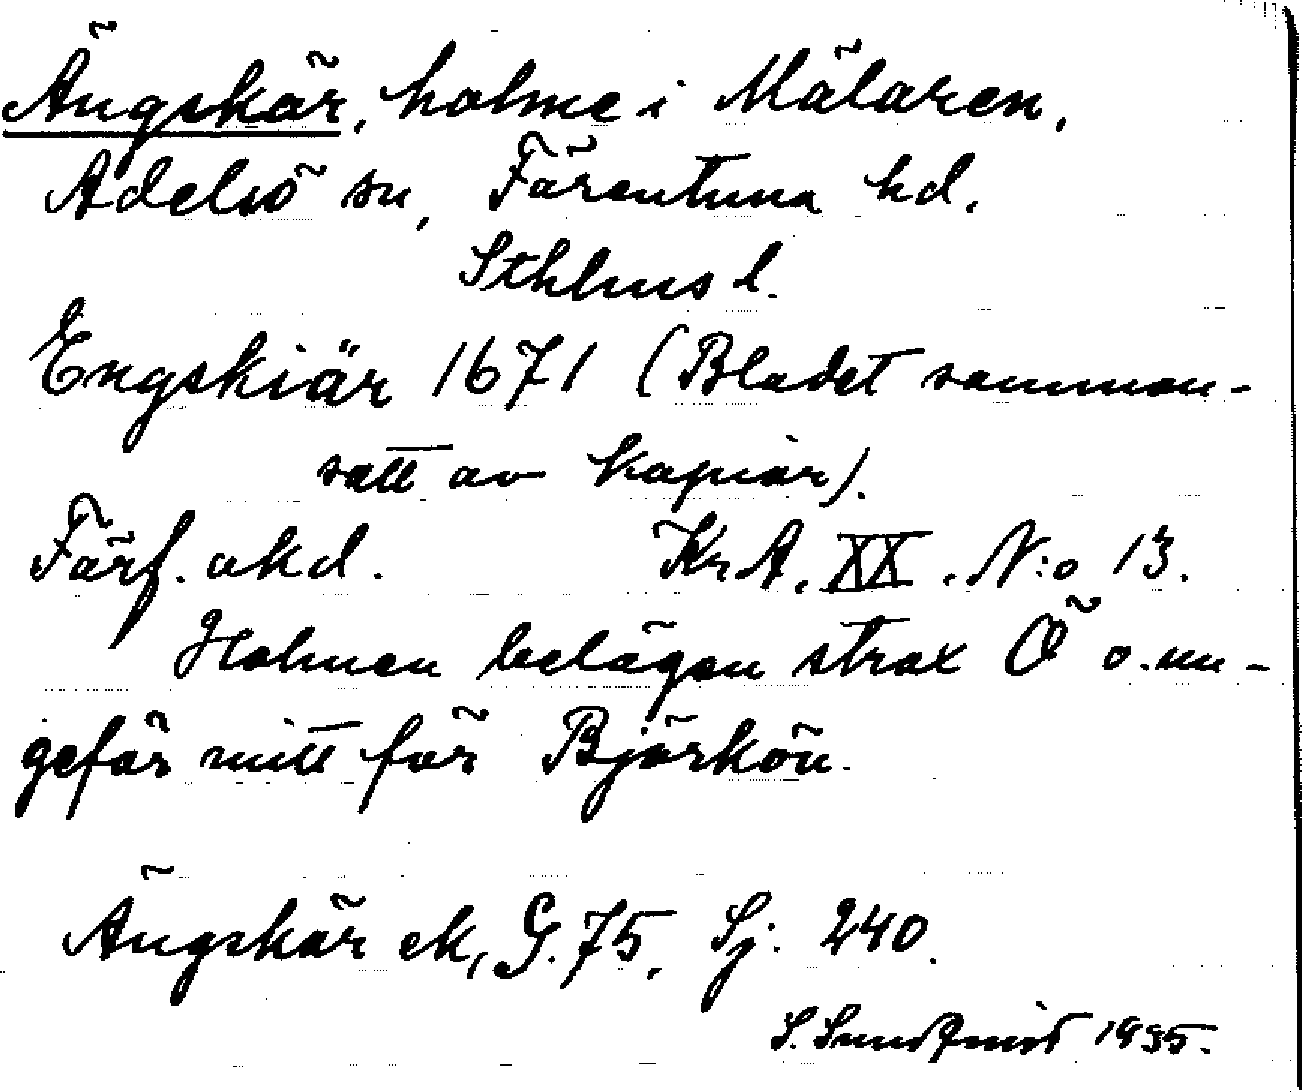 Ängskär, holme i Mälaren,
Adelsö sn, Färentuna hd.
Sthlms l.
Engskiär 1671 (Bladet samman-
satt av kapior).
Färf. akd. Kr. A. XX. N:o 13.
Holmen belägen strax Ö o. un-
gefär mitt för Björkön.
Ängskär ek, G. 75, Sj: 240.
S. Sundqvist 1935.